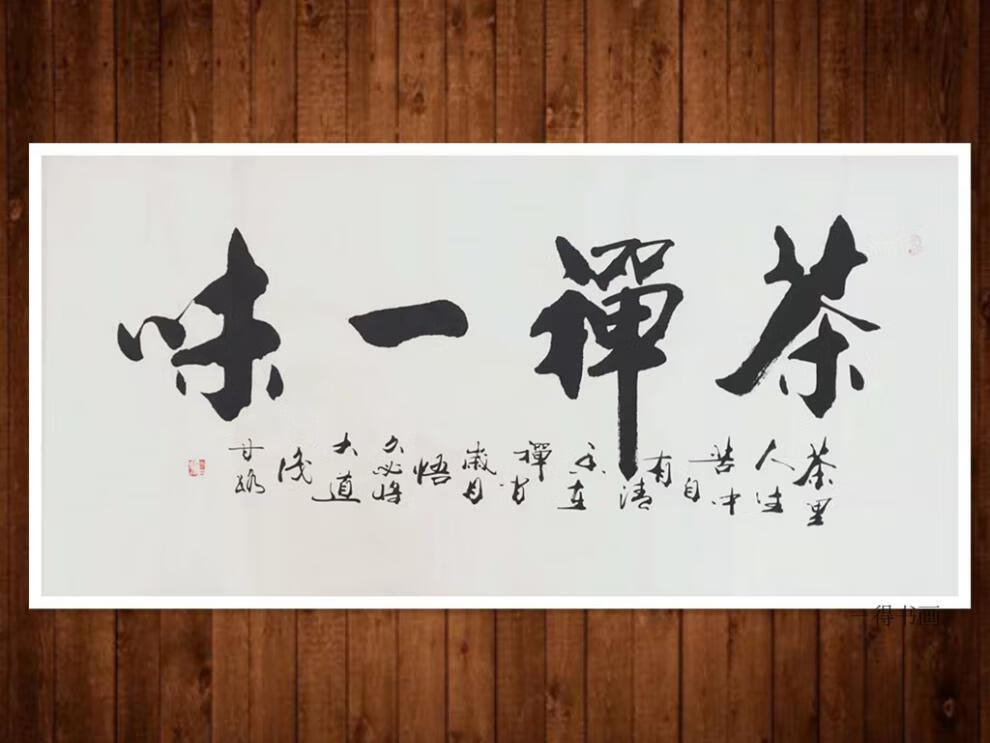 茶禪一味
茶里人生苦中自有清香在
禪歲月悟久必將大道
一得书画